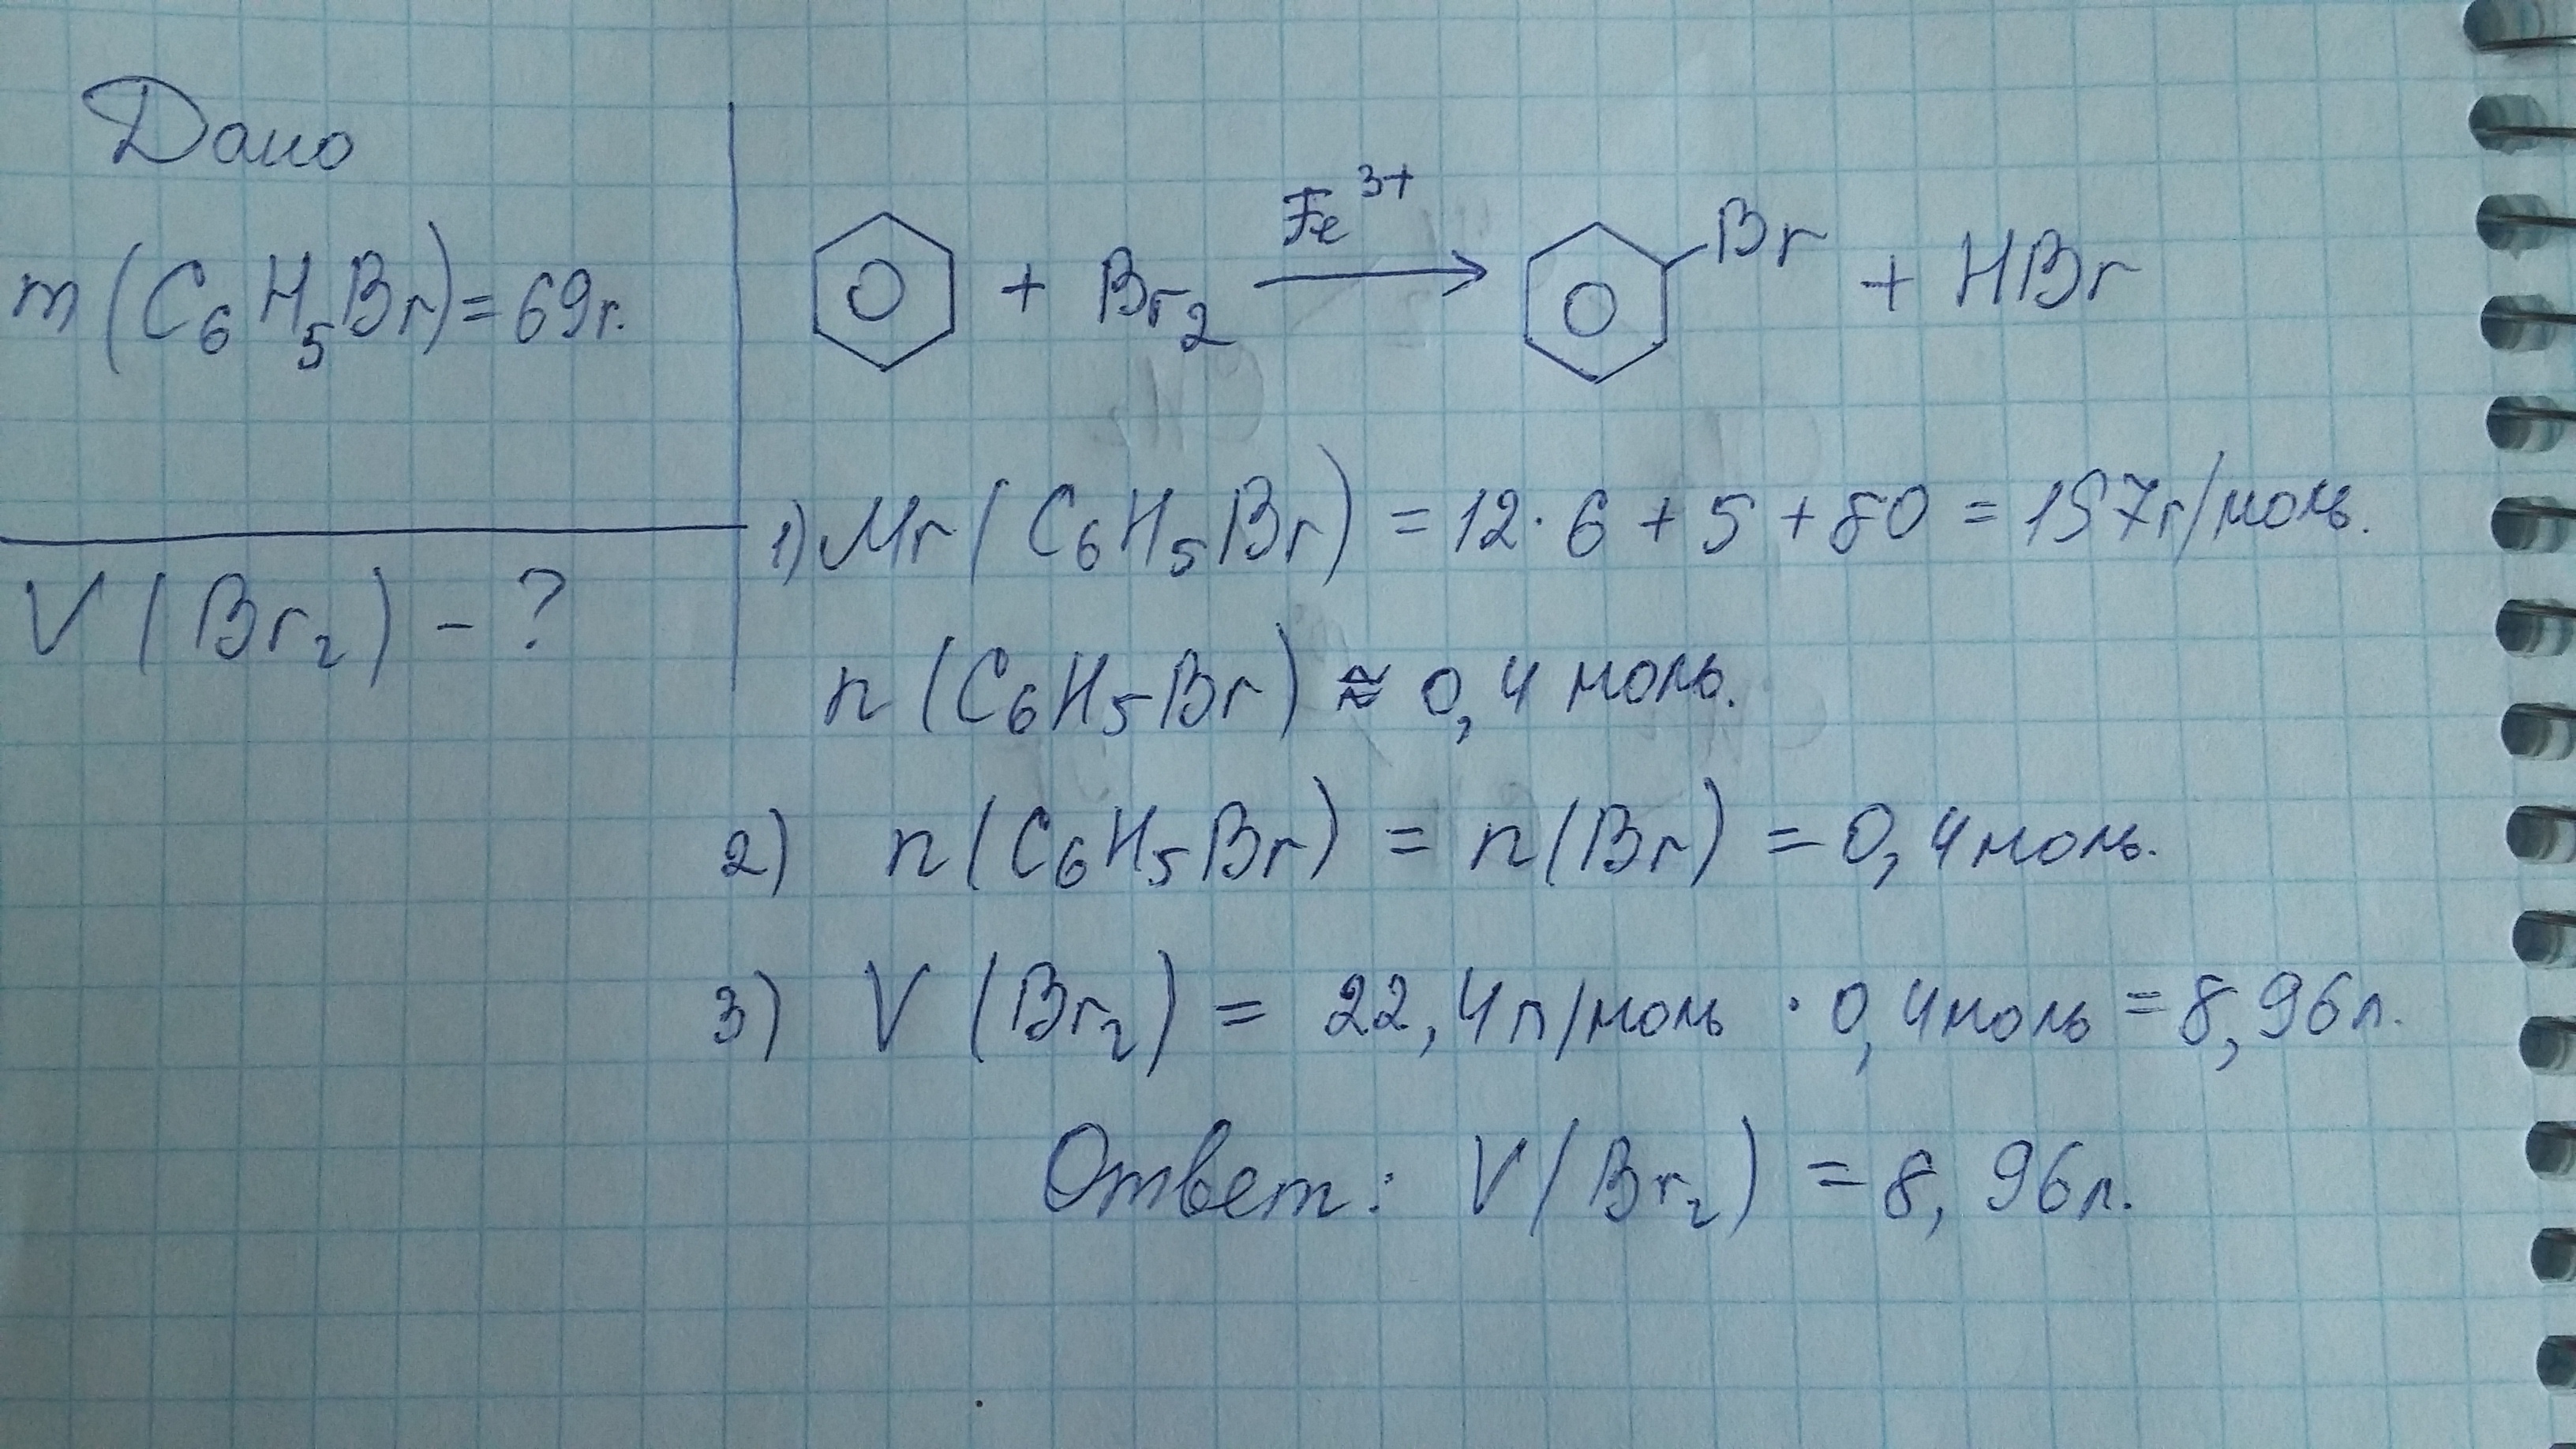 Дано
m(C₆H₅Br)=69г.
V(Br₂) - ?
+ Br₂ Fe³⁺ → Br + HBr
1) Mr(C₆H₅Br) = 12·6 + 5 + 80 = 157г/моль.
n(C₆H₅Br) ≈ 0,4 моль.
2) n(C₆H₅Br) = n(Br) = 0,4моль.
3) V(Br₂) = 22,4л/моль · 0,4моль = 8,96л.
Ответ: V(Br₂) = 8,96л.